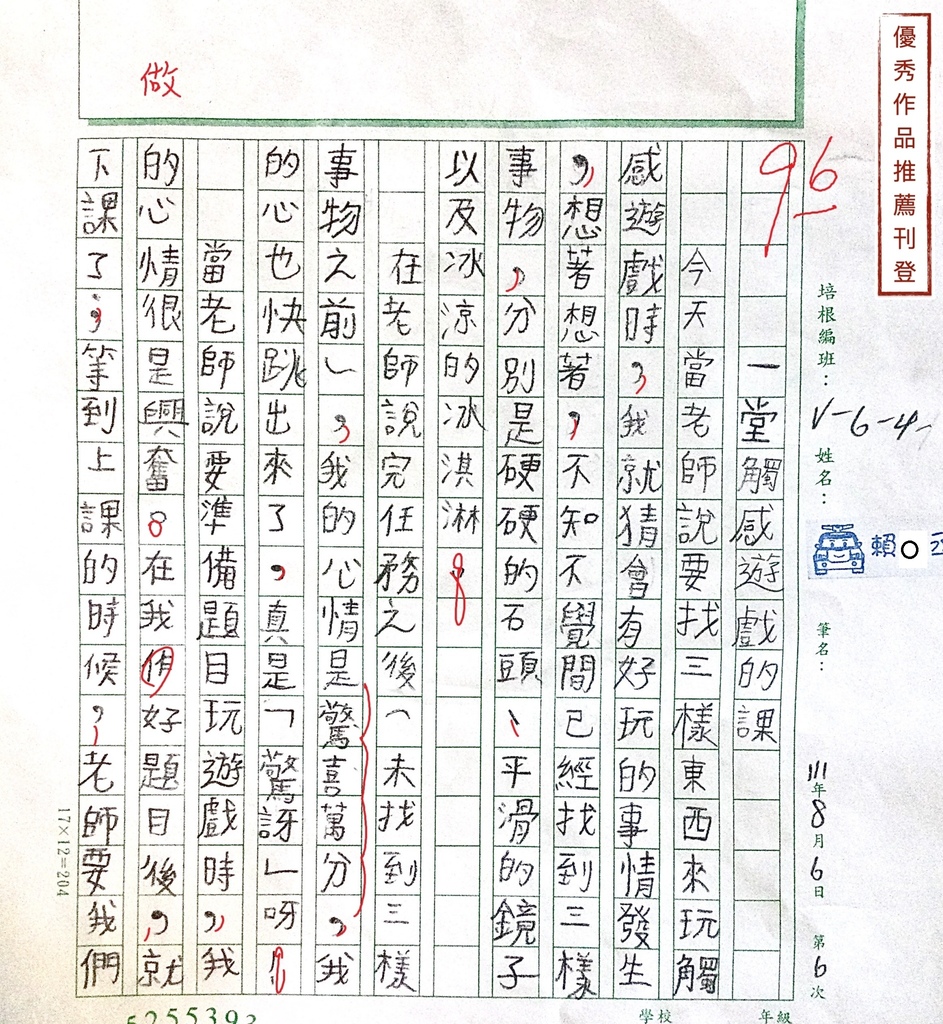 優秀作品推薦刊登
培根編班：V-6-4
姓名：賴○
筆名：
111年8月6日 第6次
96
一堂觸感遊戲的課
今天當老師說要找三樣東西來玩觸
感遊戲時，我就猜會有好玩的事情發生
，想著想著，不知不覺間已經找到三樣
事物，分別是硬硬的石頭、平滑的鏡子
以及冰涼的冰淇淋。
在老師說完任務之後（未找到三樣
事物之前），我的心情是驚喜萬分，我
的心也快跳出來了，真是「驚訝」呀！
當老師說要準備題目玩遊戲時，我
的心情很是興奮。在我做好題目後，就
下課了；等到上課的時候，老師要我們
做
17×12=204
5255393
學校
年級